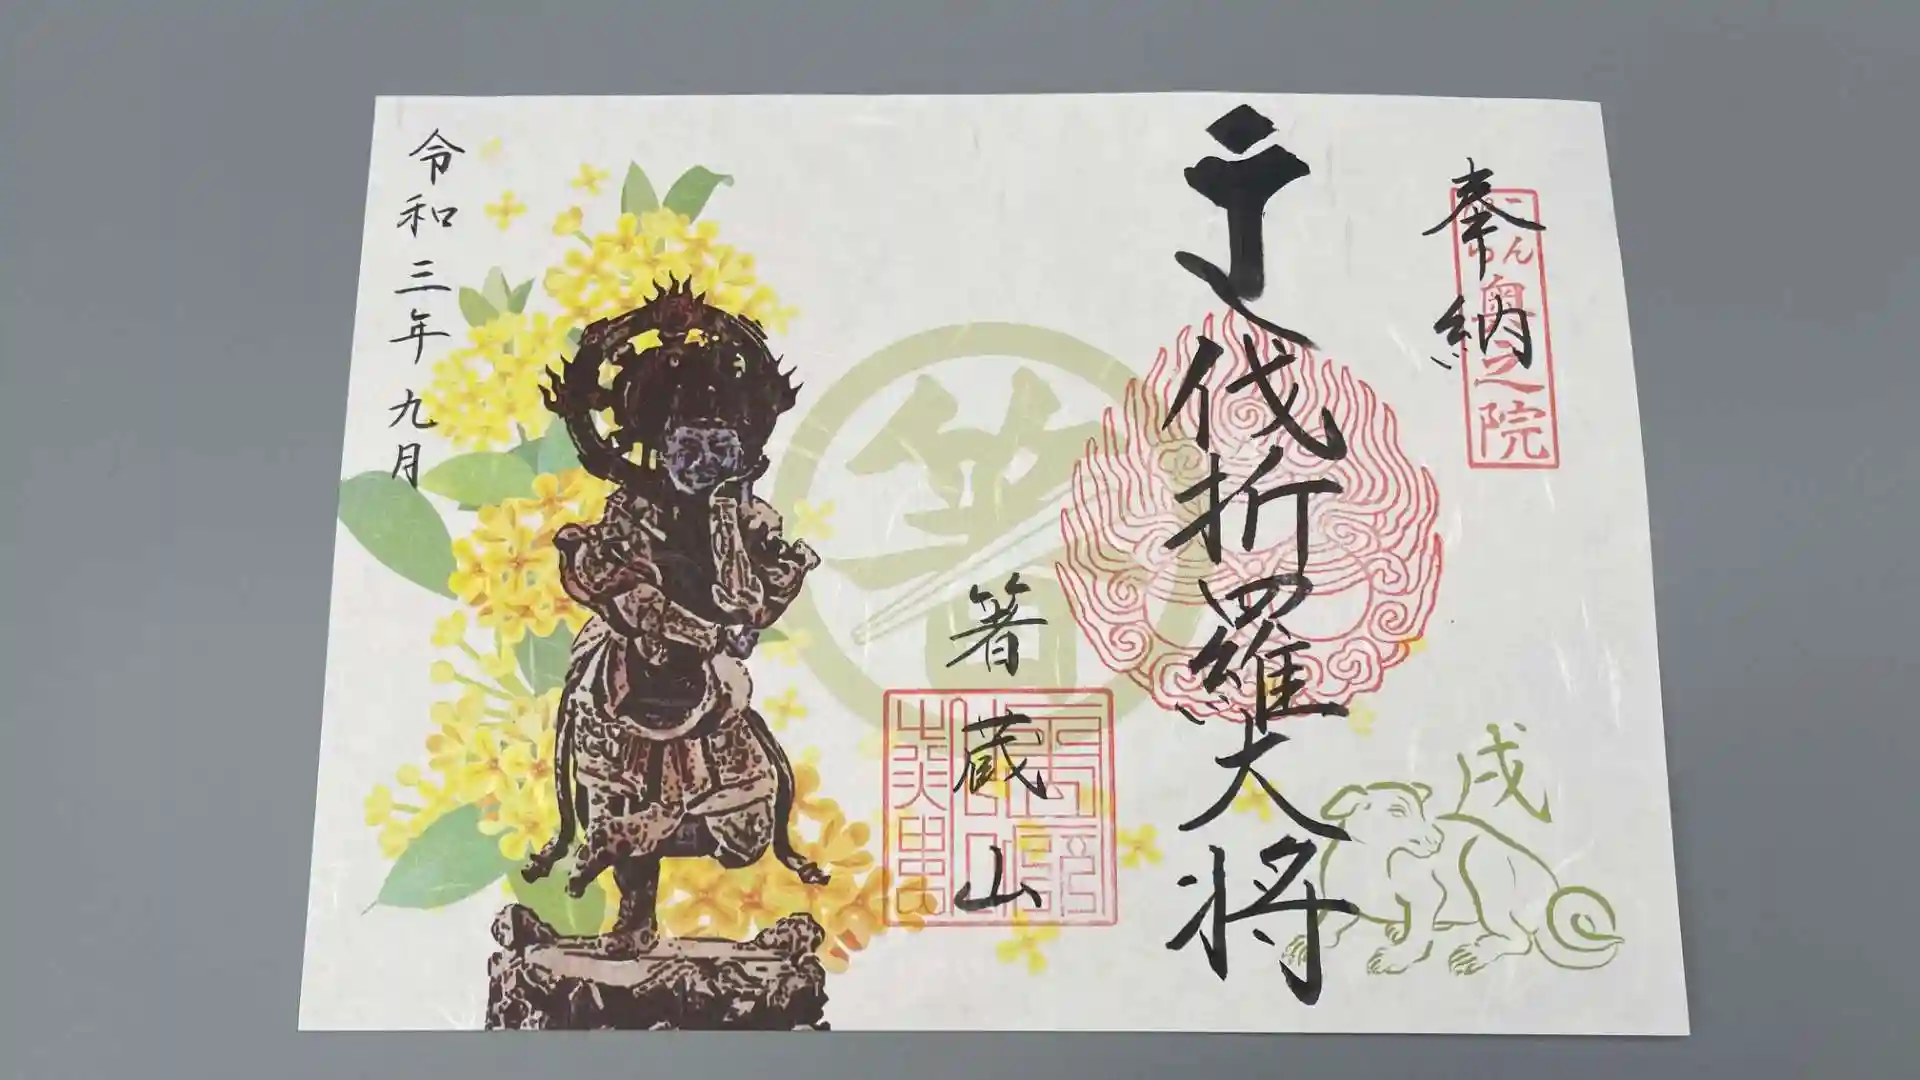 奉納
こんぴら奥之院
伐折羅大将
戌
箸
箸蔵山
令和三年九月